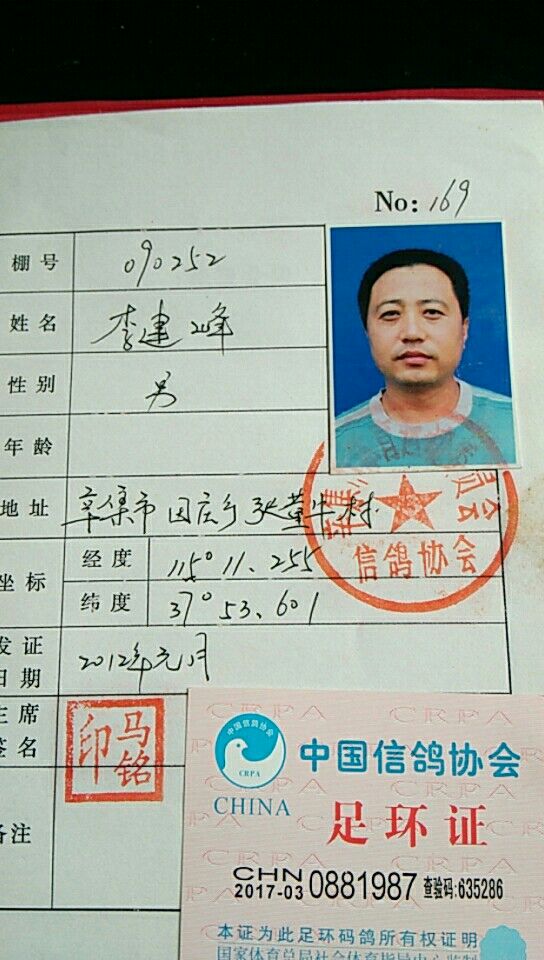 No: 169
棚号 090252
姓名 李建峰
性别 男
年龄
地址 辛集市田庄乡张董牛村
坐标 经度 115° 11、255
纬度 37° 53、601
发证日期 2012年元月
主席签名 马铭印
备注
信鸽协会
中国信鸽协会
CRPA
CHINA
中国信鸽协会
足环证
CHN
2017-03 0881987 查验码:635286
本证为此足环码鸽所有权证明
国家体育总局社会体育指导中心监制